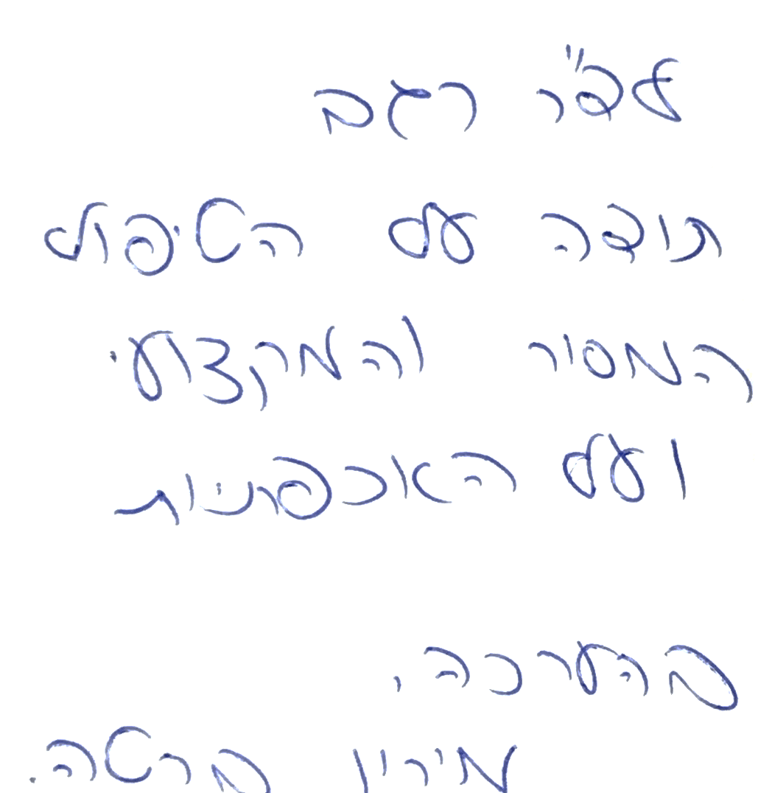 לד"ר רגב
תודה על הטיפול
המסור והמקצועי
ועל האכפתיות
בהערכה,
מירין ברטה.